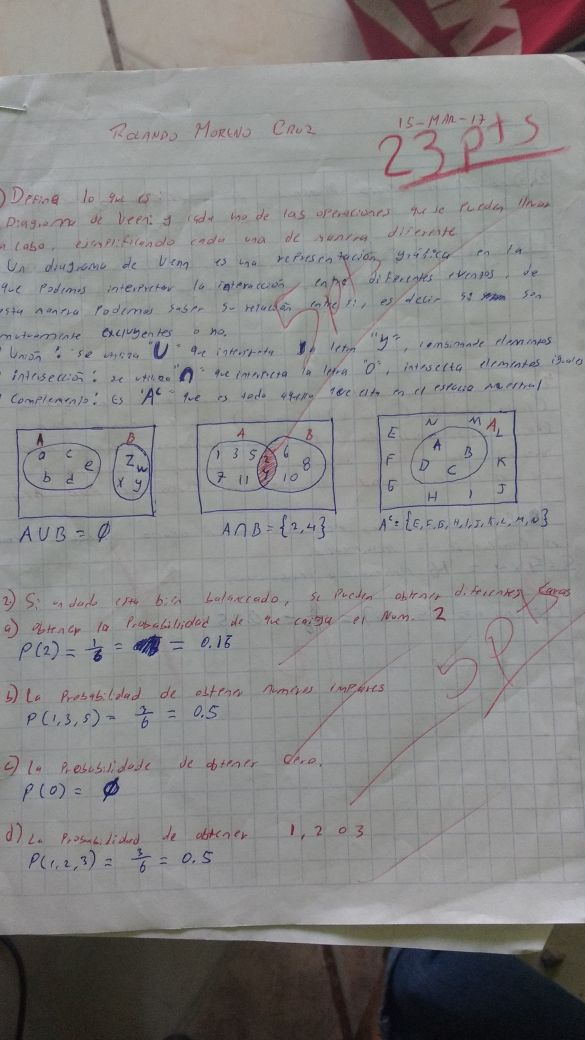 ROLANDO MORENO CRUZ
15-MAR-17
23 pts
1) Defina lo que es:
Diagrama de Veen y cada una de las operaciones que se pueden llevar
a cabo, ejemplificando cada una de manera diferente
Un diagrama de Venn es una representación gráfica en la
que podemos interpretar la interacción entre diferentes eventos, de
esta manera podemos saber su relación entre si, es decir si son
mutuamente excluyentes o no.
Unión: se utiliza "U" que interpreta la letra "y", elementos
intersección: se utiliza "∩" que interpreta la letra "O", intersecta elementos iguales
Complemento: Es "Aᶜ" que es todo aquello que esta en el espacio muestral
5 pts
A B
a c e b d
z w x y
A∪B = ∅
A B
1 3 5 7 11
2 4
6 8 10
A∩B = {2,4}
E N M A L
F A B K
G D C J
H I
Aᶜ = {E, F, G, H, I, J, K, L, M, N}
2) Si un dado esta bien balanceado, se pueden obtener diferentes caras
a) obtener la Probabilidad de que caiga el Num. 2
P(2) = 1/6 = = 0.16
5 pts
b) La Probabilidad de obtener numeros impares
P(1,3,5) = 3/6 = 0.5
c) La Probabilidade de obtener Cero.
P(0) = ∅
d) La Probabilidad de obtener 1, 2 o 3
P(1,2,3) = 3/6 = 0.5